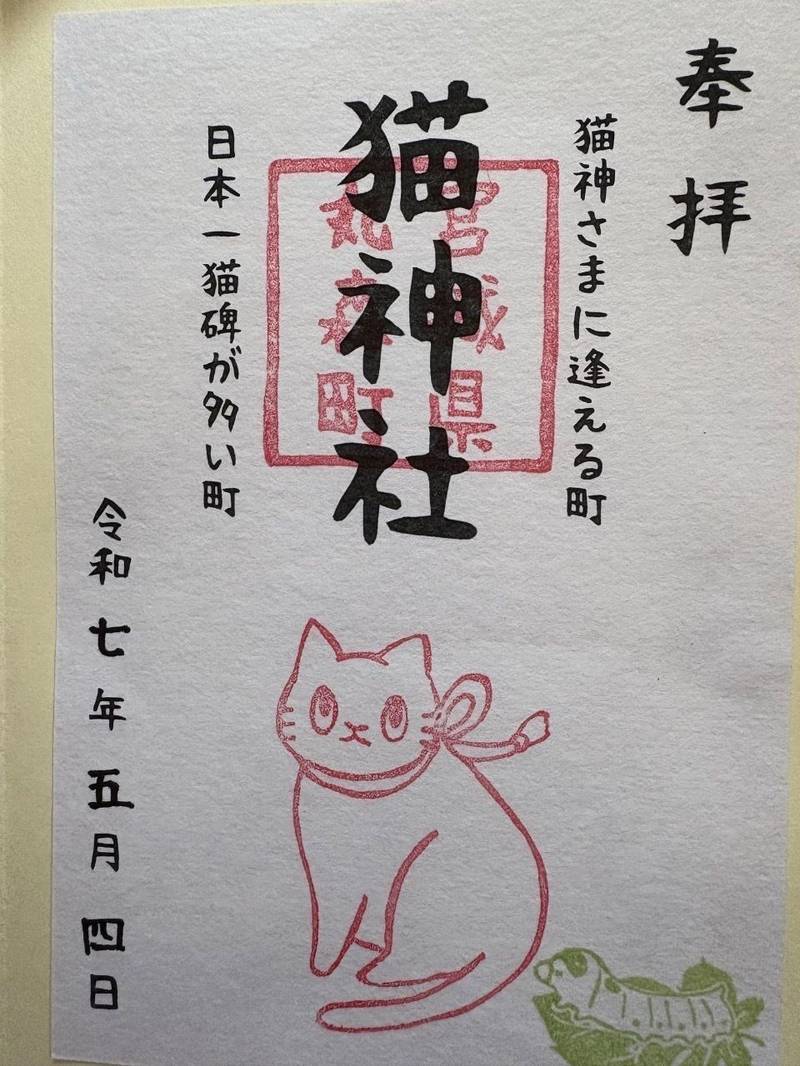 奉拝
猫神さまに逢える町
猫神社
宮城県
丸森町
日本一猫碑が多い町
令和七年五月四日